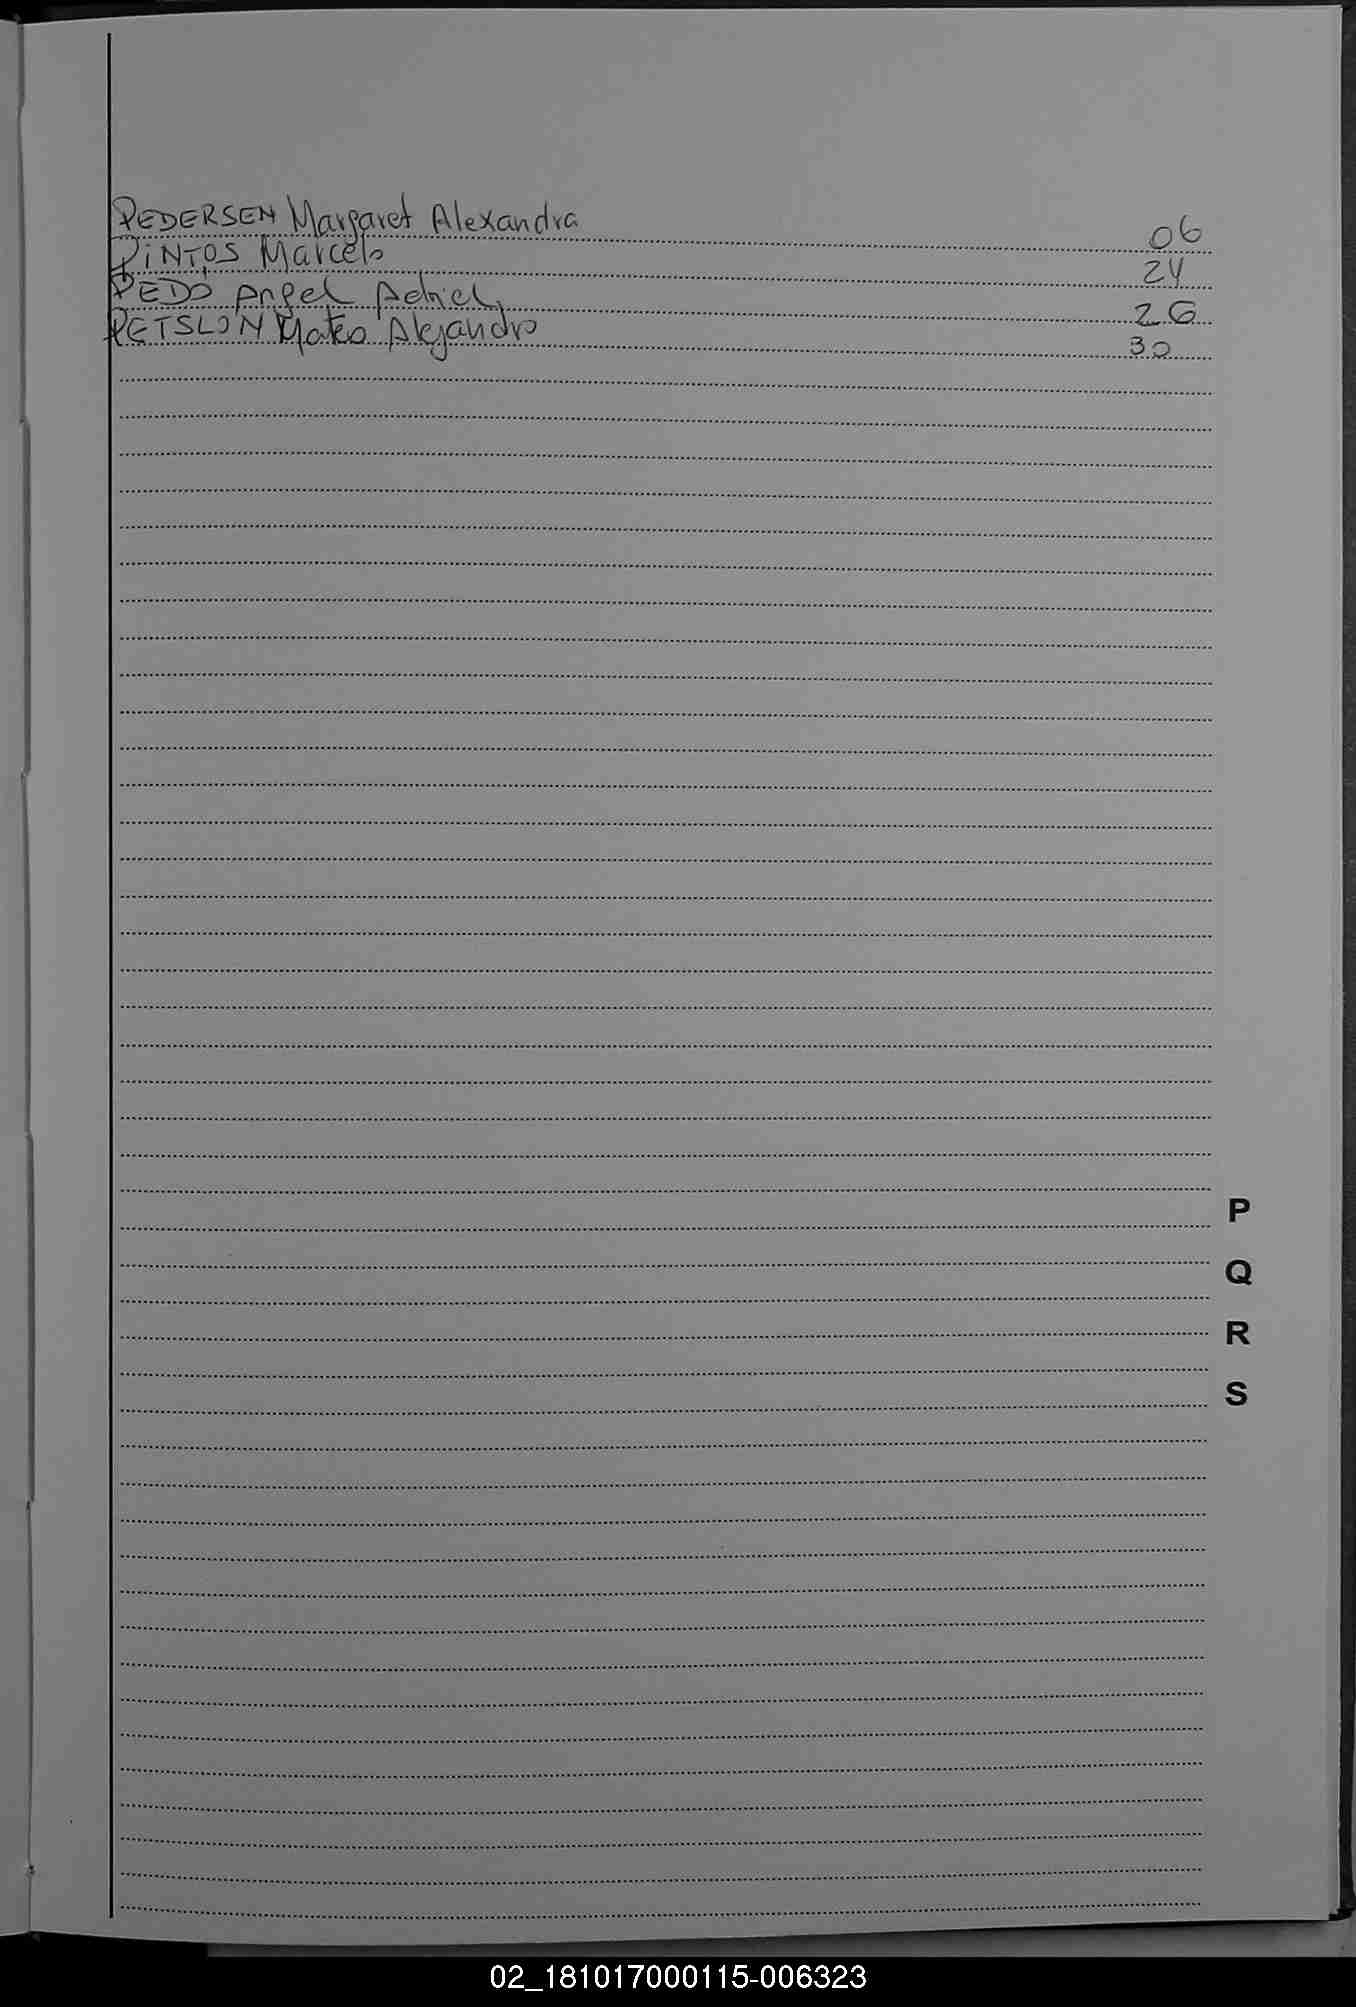 PEDERSEN Margaret Alexandra 06
PINTOS Marcelo 24
PEDÓ Angel Adriel 26
PETSLON Mateo Alejandro 30
P
Q
R
S
02_181017000115-006323